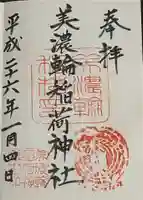 奉拝
美濃輪稲荷神社
平成二十六年一月四日